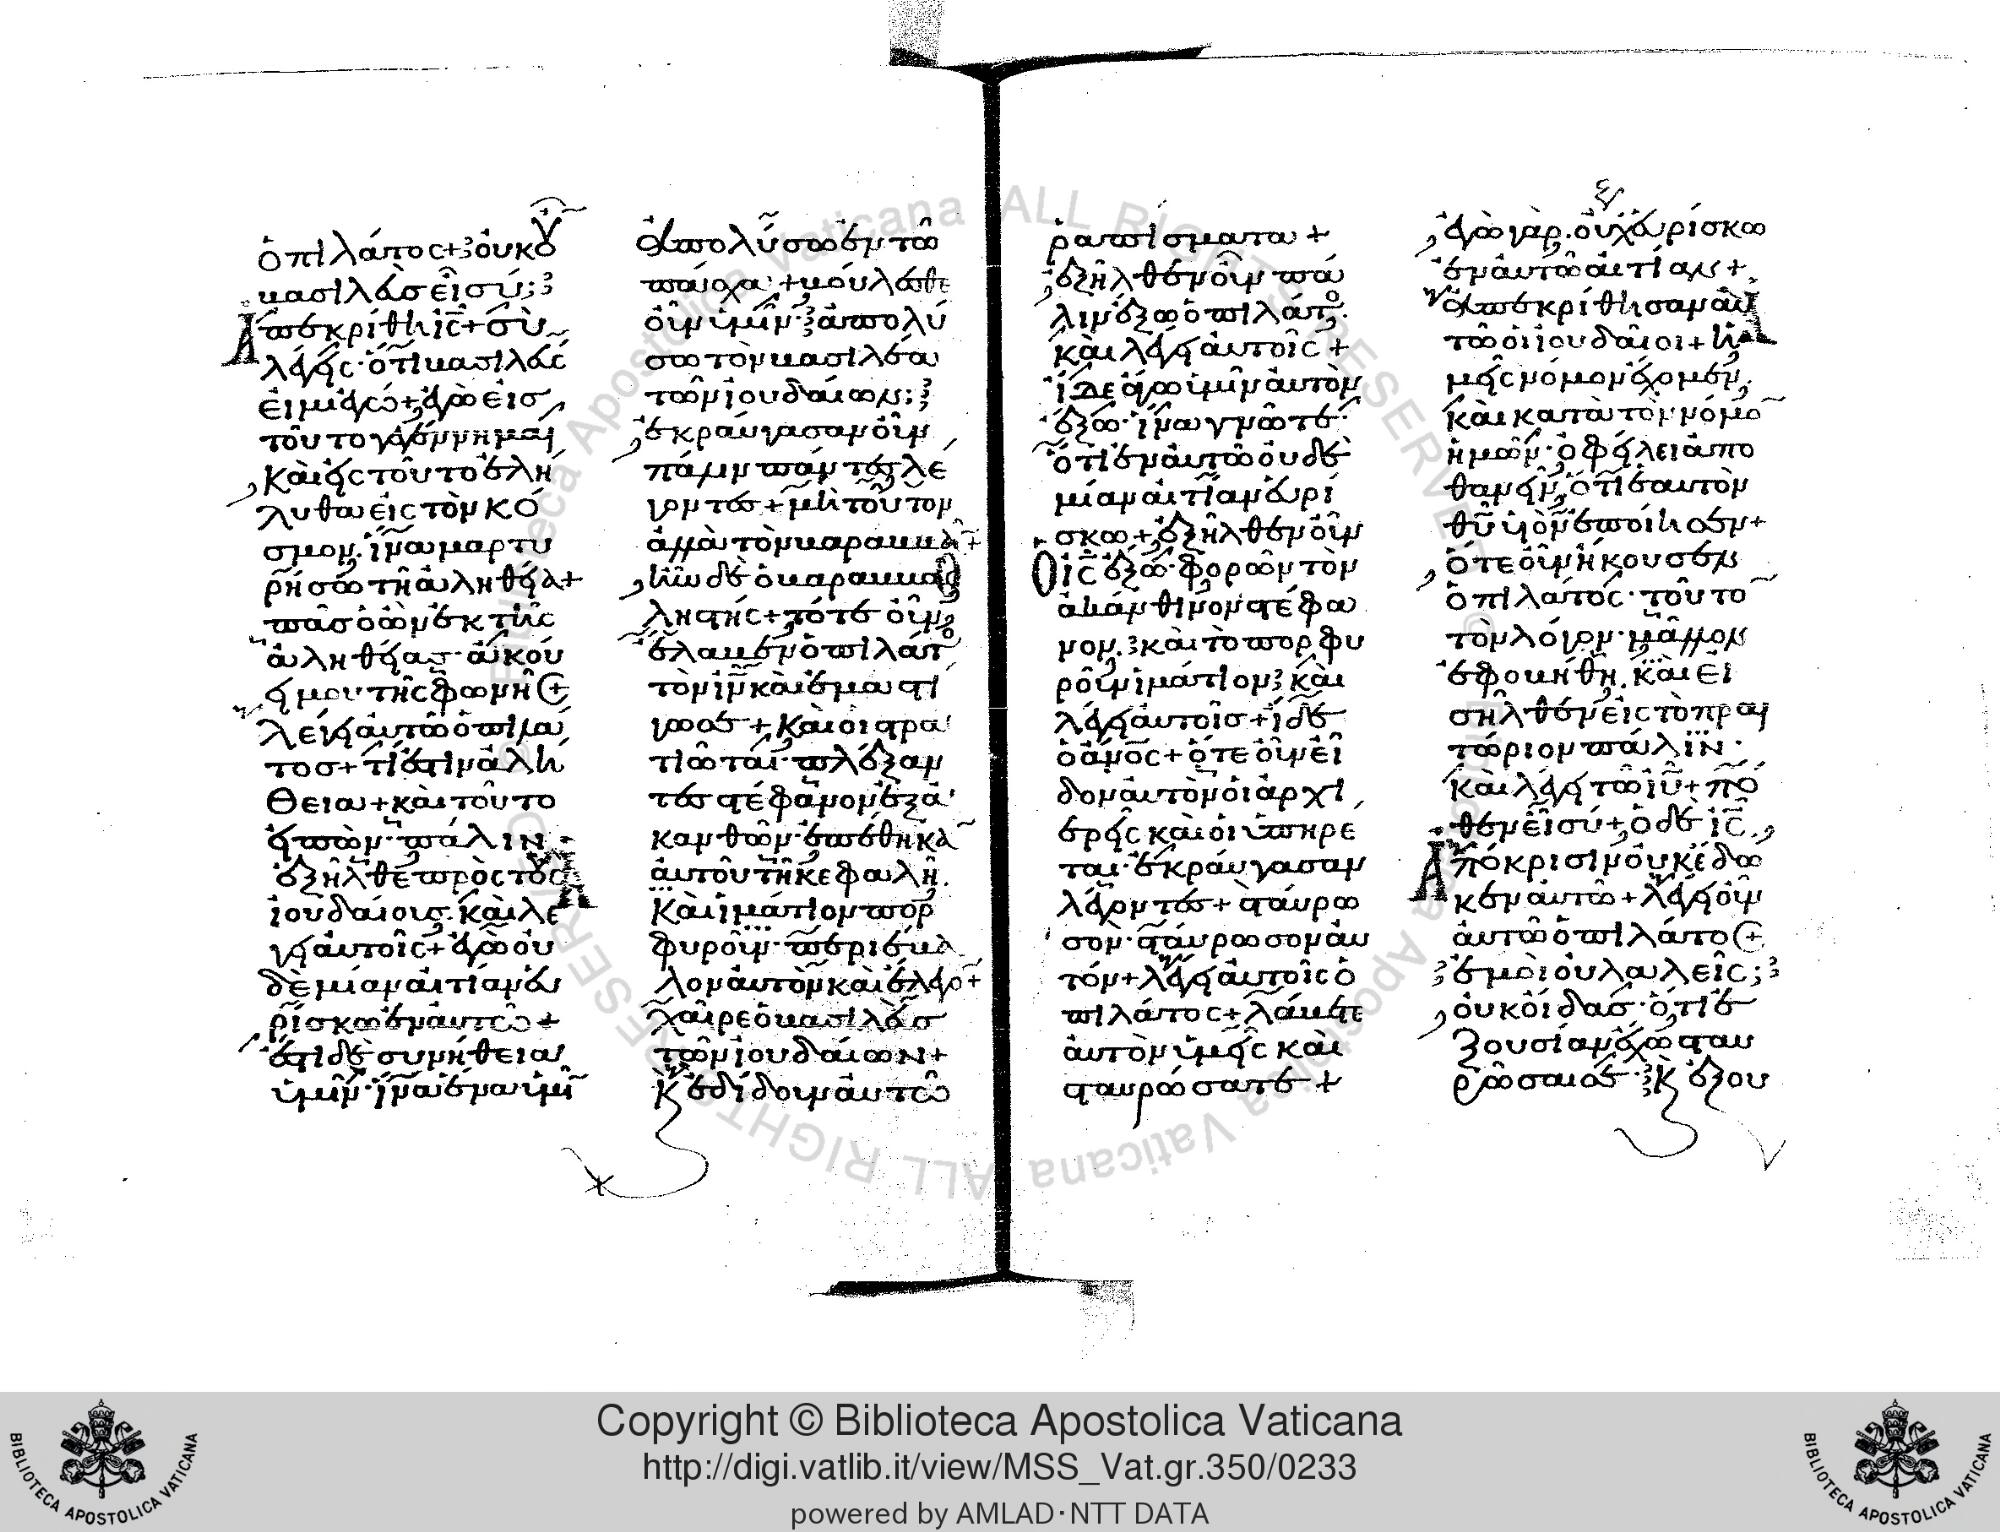 ὁ πιλάτος+ οὐκοῦ
βασιλεὺς εἶ σύ;
Ἀπεκρίθη ις+ σὺ
λέγεις· ὅτι βασιλεύς
εἰμι ἐγώ+ ἐγὼ εἰς
τοῦτο γεγέννημαι
καὶ εἰς τοῦτο ἐλή
λυθα εἰς τὸν κό
σμον. ἵνα μαρτυ
ρήσω τῇ ἀληθεία+
πᾶς ὁ ὢν ἐκ τῆς
ἀληθείας· ἀκού
ει μου τῆς φωνῆς+
λέγει αὐτῶ ὁ πιλά
τος+ τί ἐστιν ἀλή
θεια+ καὶ τοῦτο
εἰπὼν· πάλιν
ἐξῆλθε πρὸς τοὺς
ἰουδαίους. καὶ λέ
γει αὐτοῖς+ ἐγὼ οὐ
δὲ μίαν αἰτίαν εὑ
ρίσκω ἐν αὐτῶ+
ἔστι δὲ συνήθεια
ὑμῖν· ἵνα ἕνα ὑμῖ
ἀπολύσω ἐν τῶ
πάσχα+ βούλεσθε
οὖν ὑμῖν· ἀπολύ
σω τὸν βασιλέα
τῶν ἰουδαίων;
ἐκραύγασαν οὖν
πάλιν πάντες λέ
γοντες+ μὴ τοῦτον
ἀλλὰ τὸν βαραββᾶ+
ἦν δὲ ὁ βαραββᾶς
ληστής+ τότε οὖν
ἔλαβεν ὁ πιλάτ
τὸν ιν καὶ ἐμαστί
γωσε+ καὶ οἱ στρα
τιῶται· πλέξαν
τες στέφανον ἐξ ἀ
κανθῶν· ἐπέθηκα
αὐτοῦ τῆ κεφαλῆ.
Καὶ ἱμάτιον πορ
φυροῦν· περιέβα
λον αὐτὸν καὶ ἔλεγο+
χαῖρε ὁ βασιλεὺς
τῶν ἰουδαίων+
κ ἐδίδουν αὐτῶ
ῥαπίσματα+
ἐξῆλθεν οὖν πά
λιν ἔξω ὁ πιλάτο
καὶ λέγει αὐτοῖς+
ἴδε ἄγω ὑμῖν αὐτὸν
ἔξω· ἵνα γνῶτε·
ὅτι ἐν αὐτῶ οὐδε
μίαν αἰτίαν εὑρί
σκω+ ἐξῆλθεν οὖν
Ὁ ις ἔξω· φορῶν τὸν
ἀκάνθινον στέφα
νον. καὶ τὸ πορφυ
ροῦν ἱμάτιον καὶ
λέγει αὐτοῖς+ ἴδε
ὁ ἄνος+ ὅτε οὖν εἶ
δον αὐτὸν οἱ ἀρχι
ερεῖς καὶ οἱ ὑπηρέ
ται· ἐκραύγασαν
λέγοντες+ σταύρω
σον· σταύρωσον αὐ
τόν+ λέγει αὐτοῖς ὁ
πιλάτος+ λάβετε
αὐτὸν ὑμεῖς καὶ
σταυρώσατε+
ἐγὼ γὰρ. οὐχ εὑρίσκω
ἐν αὐτῶ αἰτίαν+
ἀπεκρίθησαν αὐ
τῶ οἱ ἰουδαῖοι+ ἡ
μεῖς νόμον ἔχομεν.
καὶ κατὰ τὸν νόμο
ἡμῶν· ὀφείλει ἀπο
θανεῖν, ὅτι ἑαυτὸν
θυ υἱὸν ἐποίησεν+
ὅτε οὖν ἤκουσεν
ὁ πιλάτος· τοῦτο
τὸν λόγον· μᾶλλον
ἐφοβήθη. καὶ εἰ
σῆλθεν εἰς τὸ πραι
τώριον πάλιν·
καὶ λέγει τῶ ιυ+ πό
θεν εἶ σύ+ ὁ δὲ ις.
Ἀπόκρισιν οὐκ ἔδω
κεν αὐτῶ+ λέγει οὖν
αὐτῶ ὁ πιλάτος+
ἐμοὶ οὐ λαλεῖς;
οὐκ οἶδας· ὅτι ἐ
ξουσίαν ἔχω σταυ
ρῶσαι σέ· κ ἐξου
Copyright © Biblioteca Apostolica Vaticana
http://digi.vatlib.it/view/MSS_Vat.gr.350/0233
powered by AMLAD·NTT DATA
BIBLIOTECA APOSTOLICA VATICANA
BIBLIOTECA APOSTOLICA VATICANA